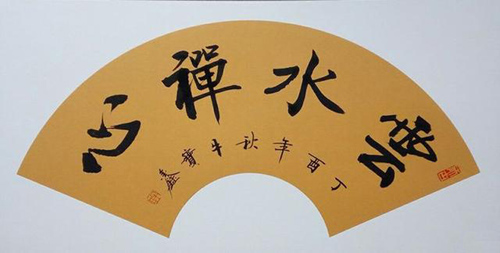 雲水禪心
丁酉年秋牛